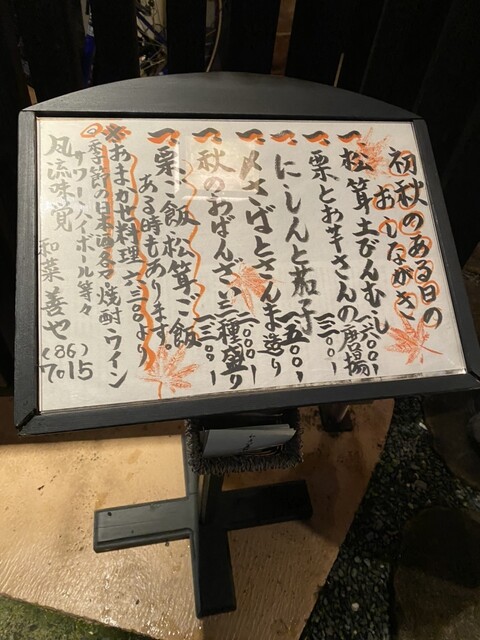 初秋のある日の
おしながき
一、松茸土びんむし
一六〇〇ー
一、栗とお芋さんの唐揚
一三〇〇ー
一、にしんと茄子
一五〇〇ー
一、〆さばとさんま造り
一、秋のおばんざい三種盛り
一三〇〇ー
一、栗ご飯 松茸ご飯
ある時もあります
※おまかせ料理 六三〇〇より
季節の日本酒各种・焼酎・ワイン
サワー・ハイボール等々
風流味覚 和菜 善也
(86)
7015